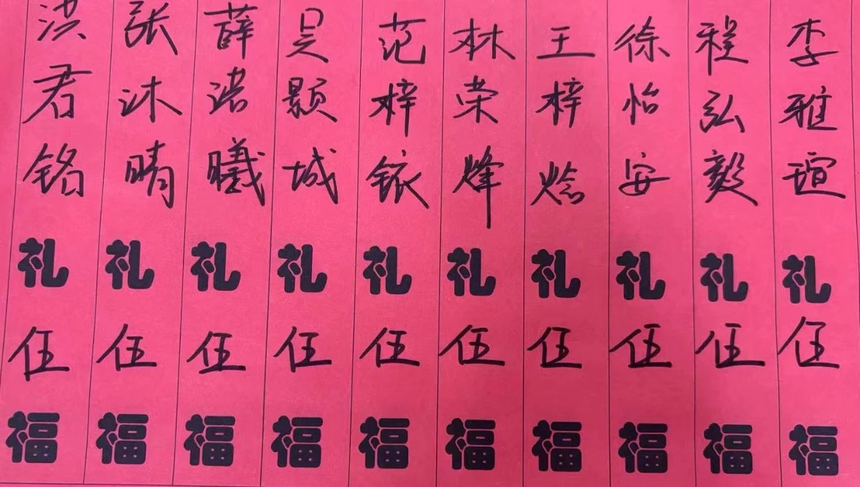 李雅瑄礼伍福
程弘毅礼伍福
徐怡安礼伍福
王梓焾礼伍福
林荣烽礼伍福
范梓铱礼伍福
吴颢城礼伍福
薛浩曦礼伍福
张沐晴礼伍福
洪君铭礼伍福